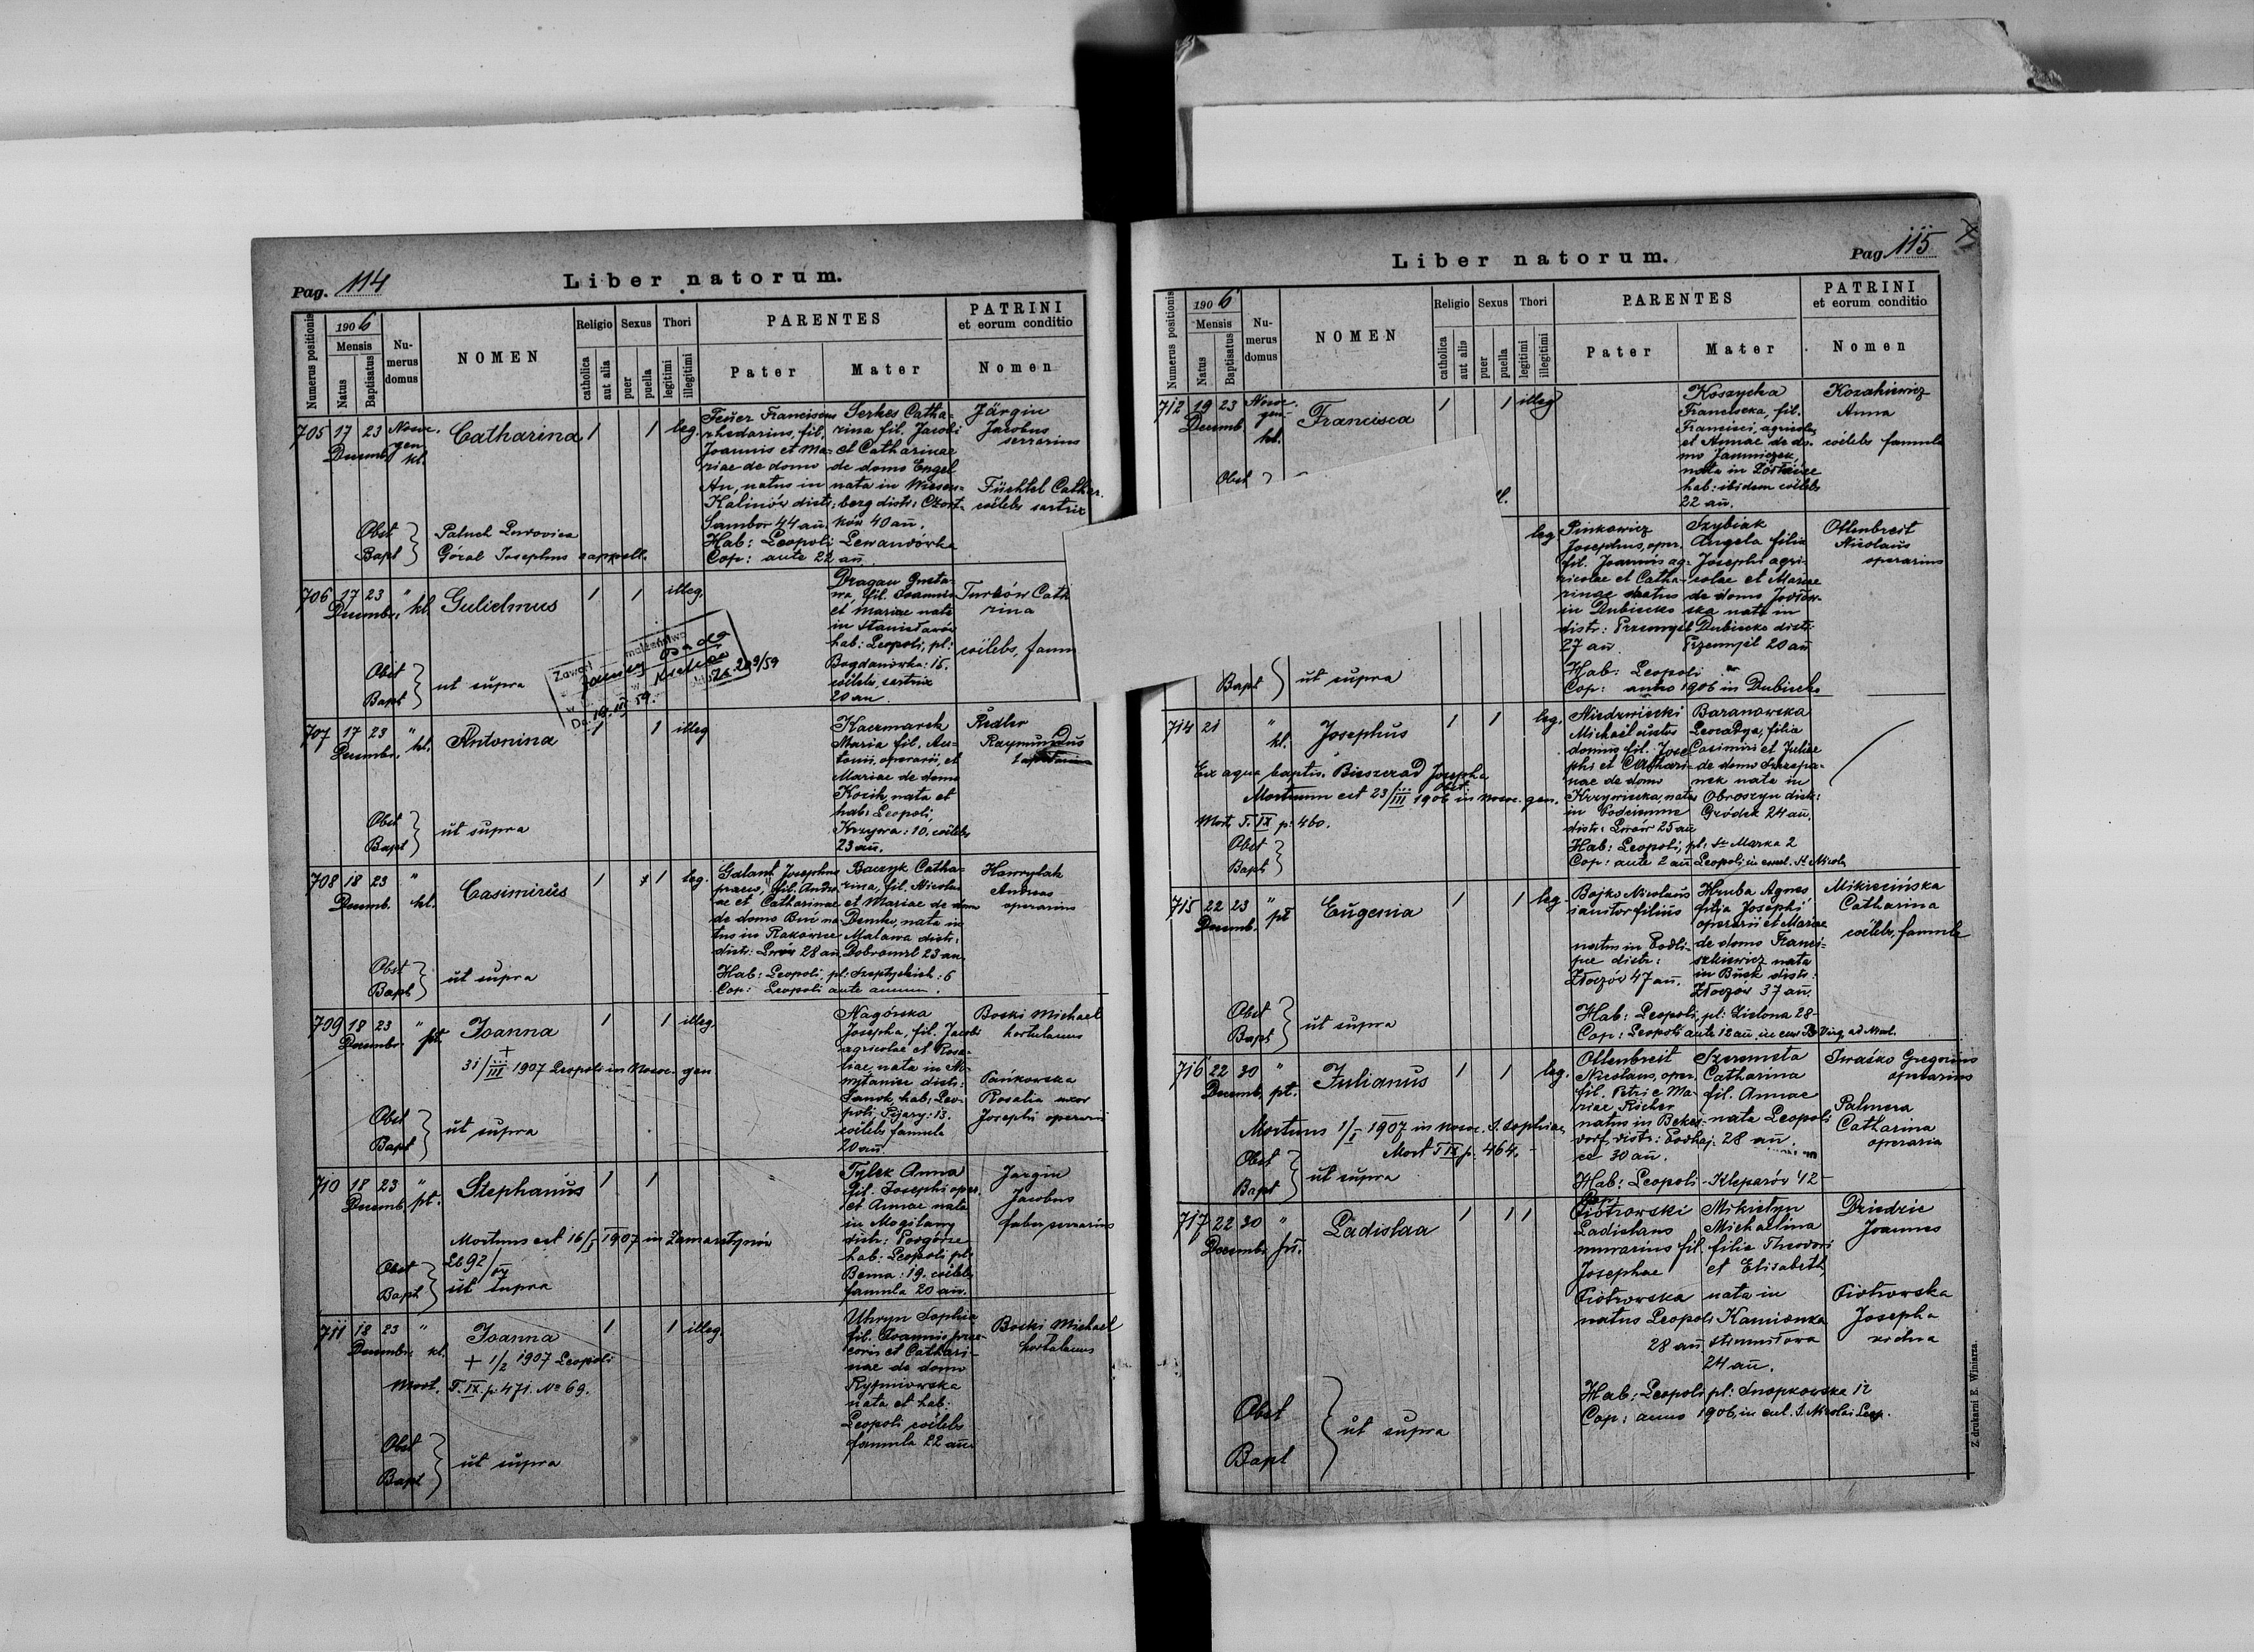 Pag. 114
Liber natorum.
Numerus positionis
1906
Mensis
Natus
Baptisatus
Nu-
merus
domus
NOMEN
Religio
catholica
aut alia
Sexus
puer
puella
Thori
legitimi
illegitimi
PARENTES
Pater
Mater
PATRINI
et eorum conditio
Nomen
705 17 23 Nosoc.
Decemb. gen.
kl.
Catharina 1 1 leg.
Feuer Franciscus
rhedarius, fil.
Joannis et Ma-
riae de domo
An, natus in
Kalinów distr:
Sambor 44 an.
Serkes Catha-
rina fil. Jacobi
et Catharinae
de domo Engel
nata in Wiesen-
berg distr: Czort-
ków 40 an.
Hab: Leopoli Lewandówka
Cop: ante 22 an.
Järgin
Jacobus
serrarius
Füchtel Cathar.
cölebs sartrix
Obst
Bapt
Paluch Ludovica
Góral Josephus cappell.
706 17 23 " kl.
Decembr.
Gulielmus 1 1 illeg.
Dragan Gusta-
wa, fil. Joannis
et Mariae nata
in Stanisławów
hab: Leopoli, pl:
Bogdanówka: 15.
cölebs, sartrix
20 an.
Turków Cath
rina
cölebs, famu
Zawarł małżeństwo
Obst
Bapt
ut supra
707 17 23 " kl.
Decembr.
Antonina 1 1 illeg
Kaczmarek
Maria fil. An-
tonii, operarii, et
Mariae de domo
Kozik, nata et
hab: Leopoli,
Krzywa: 10. cölebs
23 an.
Redler
Raymundus
Obst
Bapt
ut supra
708 18 23 "
Decemb. kl.
Casimirus 1 1 leg.
Galant Josephus
praeco, fil. Andre-
ae et Catharinae
de domo Buć na-
tus in Rakowice
distr: Lwów 28 an.
Baczyk Catha-
rina, fil. Nicolai
et Mariae de domo
Demko, nata in
Malawa distr:
Dobromil 23 an.
Hab: Leopoli, pl: Szeptyckich: 6
Cop: Leopoli ante annum.
Hawrylak
Andreas
operarius
Obst
Bapt
ut supra
709 18 23 "
Decembr. pt.
Joanna 1 1 illeg.
+
31/III 1907 Leopoli in Nosoc. gen
Nagórska
Josepha, fil. Jacobi
agricolae et Rosa-
liae, nata in No-
wotaniec distr:
Sanok, hab: Leo-
poli Pijary: 13.
cölebs famula
20 an.
Boski Michael
hortulanus
Pańkowska
Rosalia uxor
Josephi operarii
Obst
Bapt
ut supra
710 18 23 "
Decemb. pt.
Stephanus 1 1
Mortuus est 16/I 1907 in Zamarstynów
Tylek Anna
fil. Josephi oper.
et Annae nata
in Mogilany
distr: Podgórze
hab: Leopoli, pl:
Bema: 19. cölebs
famula 20 an.
Jargin
Jacobus
faber serrarius
Obst
Bapt
ut supra
711 18 23 "
Decembr. kl.
Joanna 1 1 illeg.
+ 1/2 1907 Leopoli
Mort. T. IX. p. 471. No 69.
Uhryn Sophia
fil. Joannis prae-
conis et Cathari-
nae de domo
Rytmiowska
nata et hab:
Leopoli cölebs
famula 22 an.
Boski Michael
hortulanus
Obst
Bapt
ut supra
Pag. 115
Liber natorum.
Numerus positionis
1906
Mensis
Natus
Baptisatus
Nu-
merus
domus
NOMEN
Religio
catholica
aut alia
Sexus
puer
puella
Thori
legitimi
illegitimi
PARENTES
Pater
Mater
PATRINI
et eorum conditio
Nomen
712 19 23 Nosoc.
Decemb. gen.
kl.
Francisca 1 1 illeg
Koszycka
Franciscka, fil.
Francisci, agricolae
et Annae de do-
mo Jamniczek,
nata in
hab: ibidem cölebs
22 an.
Kozakiewicz
Anna
cölebs famula
Obst
leg.
Pinkowicz
Josephus, oper.
fil. Joannis ag-
ricolae et Catha-
rinae natus
in Dubiecko
distr: Przemyśl
27 an.
Szybiak
Angela filia
Josephi agri-
colae et Mariae
de domo Jodłow-
ska nata in
Dubiecko distr:
Przemyśl 20 an
Hab: Leopoli
Cop: anno 1906 in Dubiecko
Ottenbreit
Nicolaus
operarius
Bapt
ut supra
714 21 "
kl.
Josephus 1 1 leg.
Ex aqua baptis. Bieszczad Josepha
obst.
Mortuum est 23/III 1906 in nosoc. gen.
Mort. T. IX p. 460.
Niedzwiecki
Michael custos
domus fil. Jose-
phi et Cathari-
nae de domo
Krzywicka, natus
in
distr: Lwów 25 an
Baranowska
Leocadya, filia
Casimiri et Juliae
de domo Szczepa-
nek nata in
Obroszyn distr:
Gródek 24 an.
Hab: Leopoli, pl: St. Marka 2
Cop: ante 2 an Leopoli in eccl. St. Nicol.
Obst
Bapt
715 22 23 "
Decemb. pt
Eugenia 1 1 leg.
Bojko Nicolaus
ianitor filius
natus in Podli-
pce distr:
Złoczów 47 an.
Hruba Agnes
filia Josephi
operarii et Mariae
de domo Franci-
szkiewicz nata
in Busk distr:
Złoczów 37 an.
Hab: Leopoli, pl: Zielona 28
Cop: Leopoli ante 12 an. in
Mikrecińska
Catharina
cölebs, famula
Obst
Bapt
ut supra
716 22 30 "
Decemb. pt.
Julianus 1 1 leg.
Mortuus 1/I 1907 in nosoc. S. Sophiae
Mort T IX p. 464.
Ottenbreit
Nicolaus, oper.
fil. Petri e Ma-
riae Richer
natus in Beker-
dorf distr: Podhaj-
ce 30 an.
Szeremeta
Catharina
fil. Annae
nata Leopoli
28 an.
Hab: Leopoli - Kleparów 42
Cop:
Iwaśko Gregorius
operarius
Palmera
Catharina
operaria
Obst
Bapt
ut supra
717 22 30 "
Decembr. pt.
Ladislaa 1 1 1
Piotrowski
Ladislaus
murarius fil.
Josephae
Piotrowska
natus Leopoli
28 an.
Mikietyn
Michaelina
filia Theodori
et Elisabeth,
nata in
Kamionka
strumiłowa
24 an.
Hab: Leopoli pl: Snopkowska 12
Cop: anno 1906, in eccl. S. Nicolai Leop.
Dziedzic
Joannes
Piotrowska
Josepha
vidua
Obst
Bapt
ut supra
Z drukarni E. Winiarza.